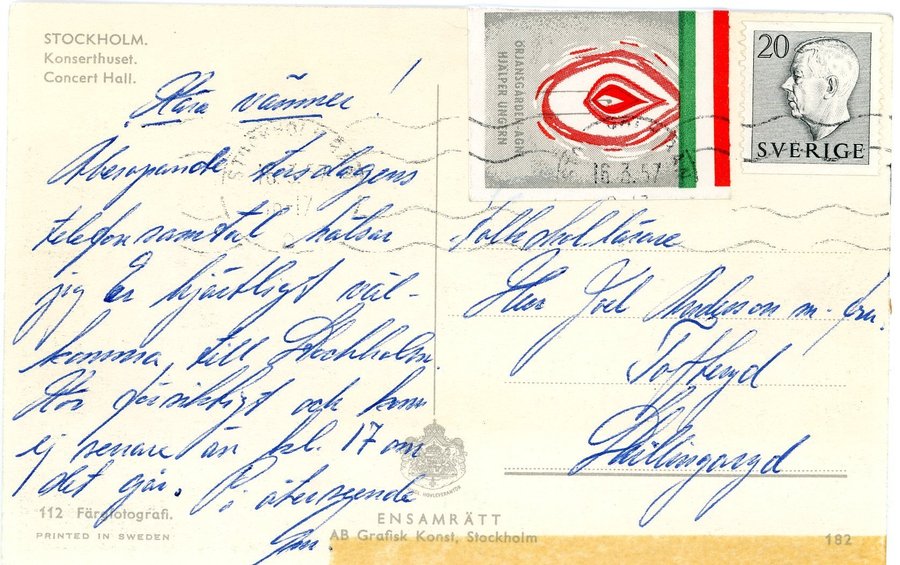 STOCKHOLM.
Konserthuset.
Concert Hall.
Kära vänner!
Åberopande torsdagens
telefonsamtal hälsar
jag Er hjärtligt väl-
komna till Stockholm.
Kör försiktigt och kom
ej senare än kl. 17 om
det går. På återseende
112 Färgfotografi.
PRINTED IN SWEDEN
ENSAMRÄTT
AB Grafisk Konst, Stockholm
182
ÖRJANSGÅRDEN-AGNI
HJÄLPER UNGERN
16.3.57
20
SVERIGE
Folkskollärare
Herr Joel Andersson m. fru.
Toftteryd
Skillingaryd